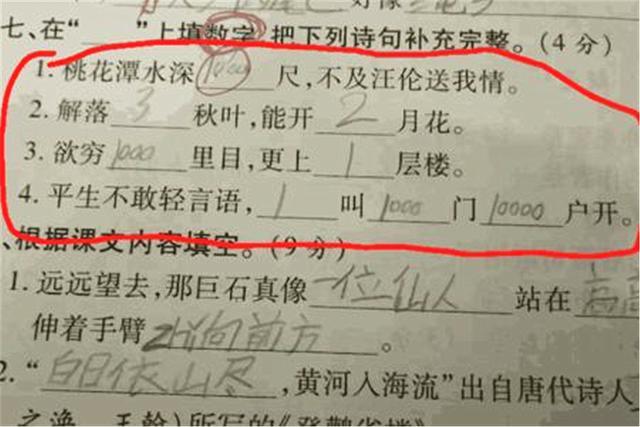 好像
七、在“ ”上填数字,把下列诗句补充完整。(4分)
1. 桃花潭水深1000尺,不及汪伦送我情。
2. 解落3秋叶,能开2月花。
3. 欲穷1000里目,更上1层楼。
4. 平生不敢轻言语,1叫1000门10000户开。
、根据课文内容填空。(9分)
1. 远远望去,那巨石真像一位仙人站在高高
伸着手臂指向前方。
2. “白日依山尽,黄河入海流”出自唐代诗人
之涣 王翰)所写的《登鹳雀楼